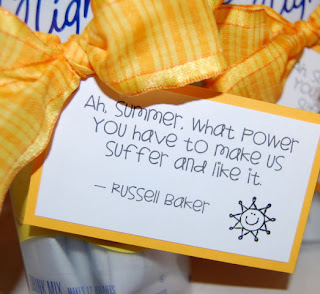 Ah, summer. What power
you have to make us
suffer and like it.
— Russell Baker
DRINK MIX